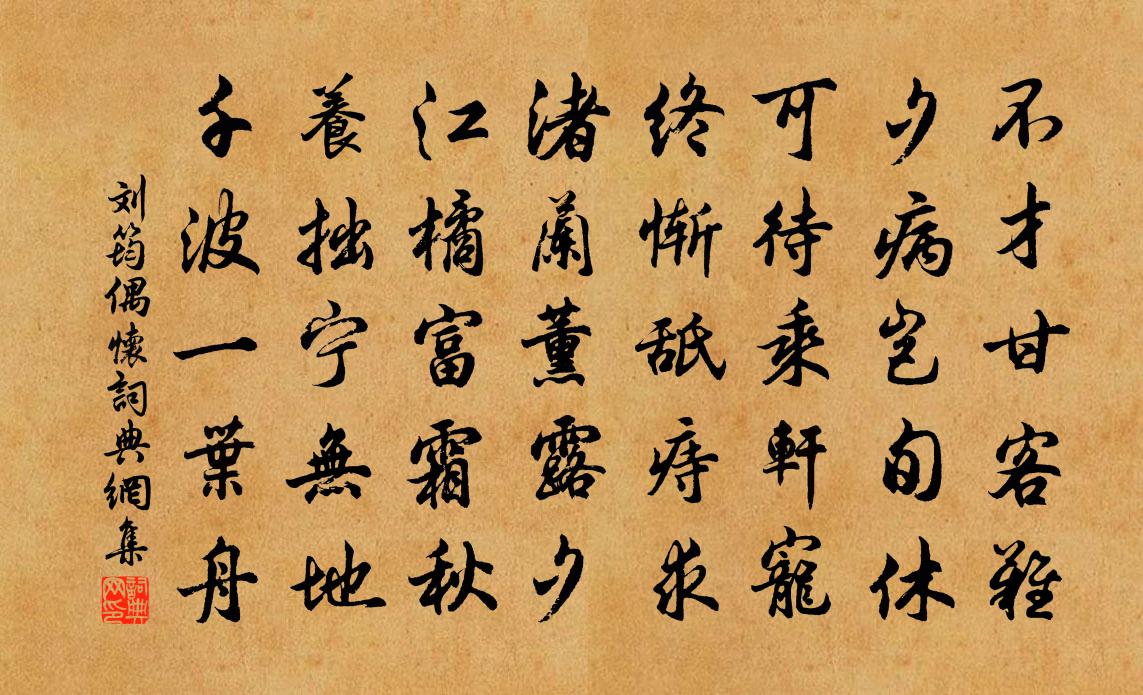 不才甘客难
夕病岂旬休
可待乘軒寵
终惭舐痔求
渚蘭薰露夕
江橘富霜秋
養拙宁無地
千波一葉舟
刘筠偶懷詞典網集
詞典网印